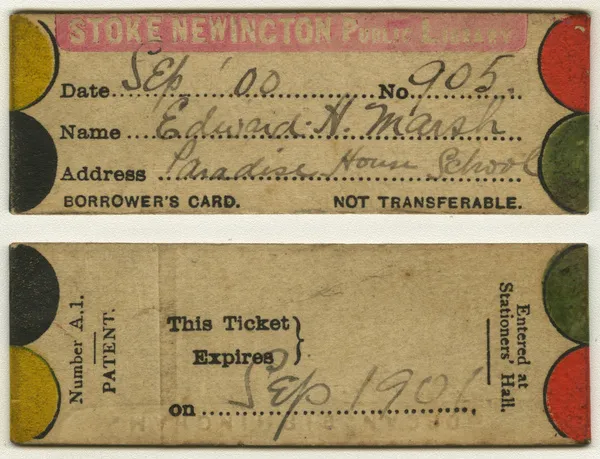 STOKE NEWINGTON PUBLIC LIBRARY
Date Sep '00 No. 905.
Name Edward H. Marsh
Address Paradise House School
BORROWER'S CARD. NOT TRANSFERABLE.
Number A.1.
PATENT.
This Ticket
Expires
on Sep 1901
Entered at
Stationers' Hall.